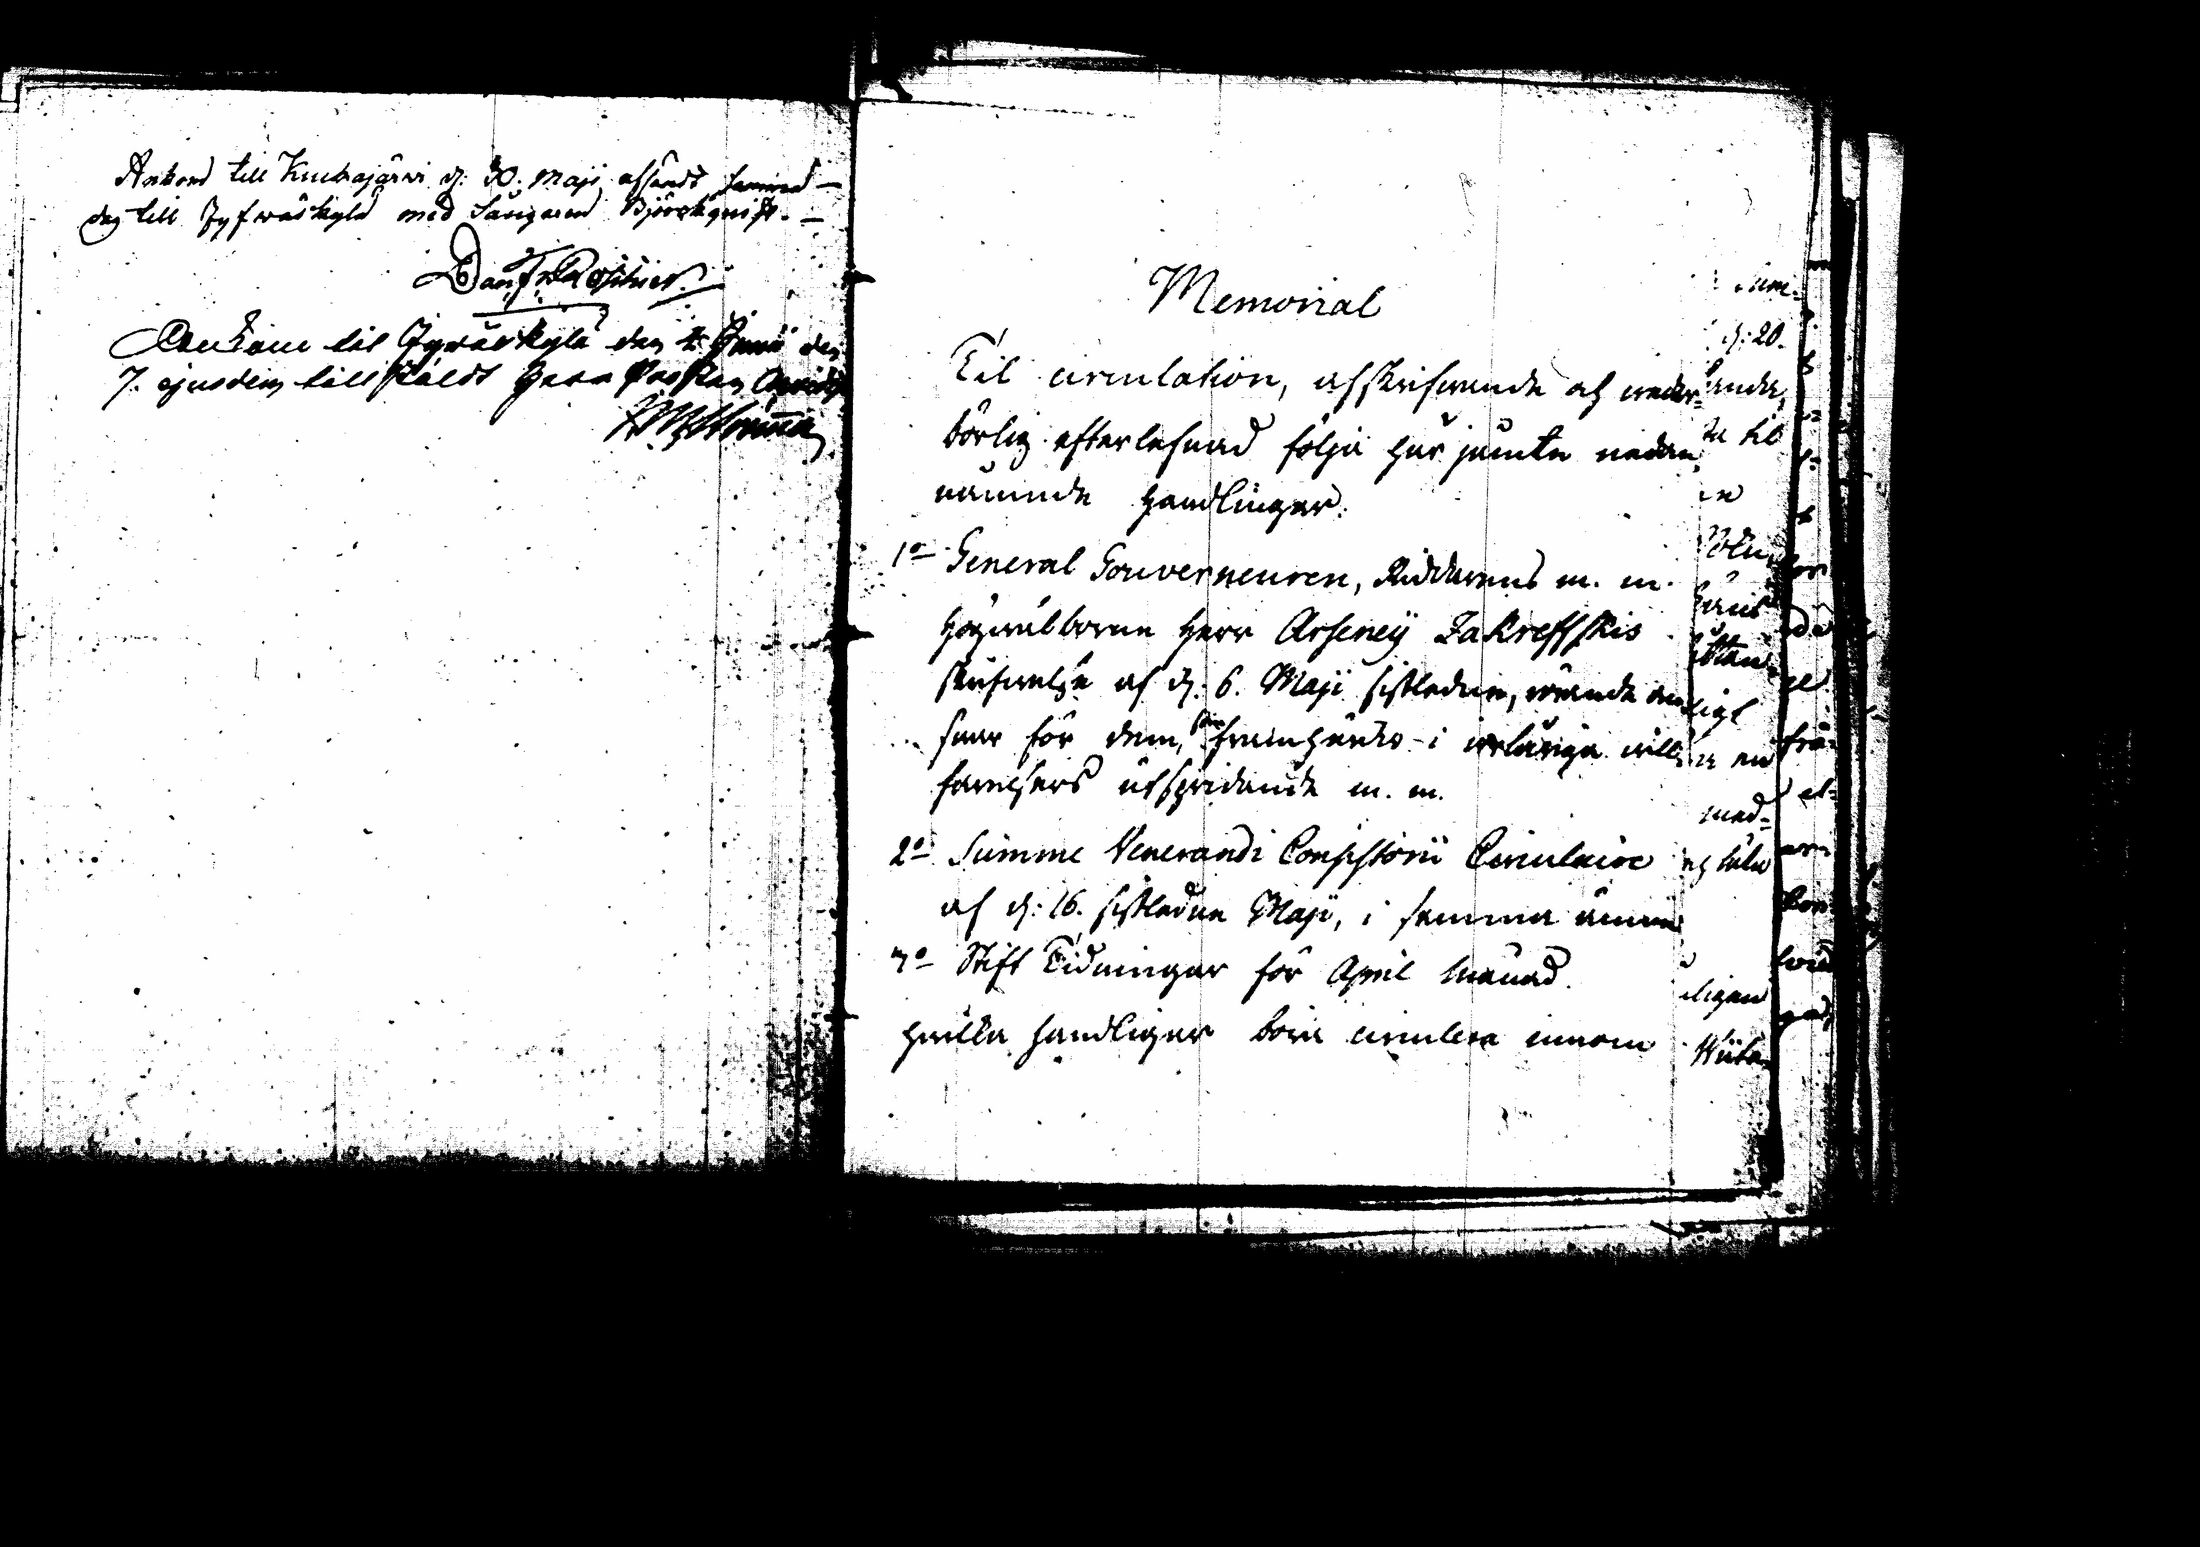 Ankom till Knuhajärvi d: 30. Maji afsändt samma
dag till Jyfwäskylä med Sångaren Björckqvist.
Dan. Fr. Roschier
Ankom til Jywäskylä den 4 Junii den
7. ejusdem tillstäldt Herr Prosten
Memorial
Til circulation, afskrifwande och weder¬
börlig efterlefnad följa här jämte nedan
nämnde handlingar:
1o General Gouverneuren, Riddarens m. m.
Högwälborne Herr Arseniÿ Zakreffskis
skrifwelse af d: 6. Maji sistledne, rörande an
swar för dem, som framhärda i irrläriga willo
farelsers utspridande m. m.
2o Summe Venerandi Consistorii Circulaire
af d: 16. sistledne Maji, i samma ämne
3o Stift Tidningar för April månad.
hwilka handligar böra circulera innom